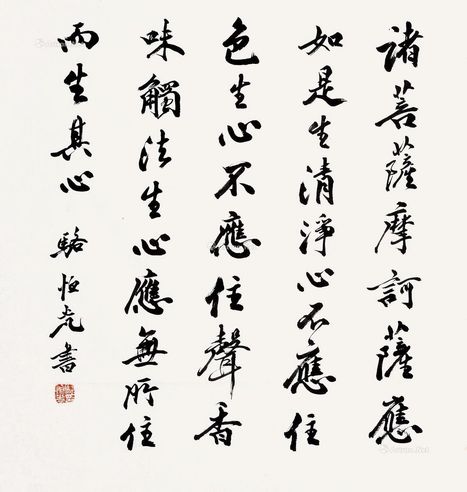 諸菩薩摩訶薩應
如是生清淨心不應住
色生心不應住聲香
味觸法生心應無所住
而生其心 駱恒光書